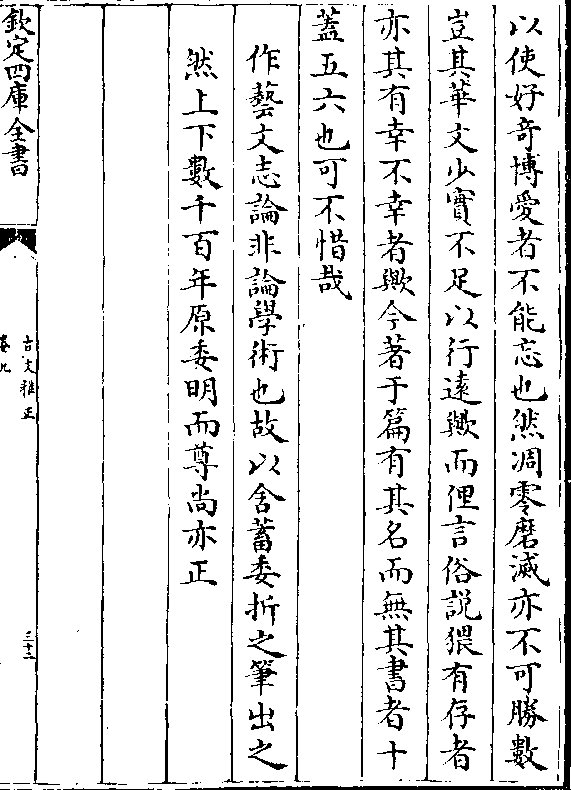 以使好奇博愛者不能忘也然凋零磨滅亦不可勝數
豈其華文少實不足以行遠歟而俚言俗説猥有存者
亦其有幸不幸者歟今著于篇有其名而無其書者十
蓋五六也可不惜哉
作藝文志論非論學術也故以含蓄委折之筆出之
然上下數千百年原委明而尊尚亦正
欽定四庫全書
古文雅正
卷九
三十二